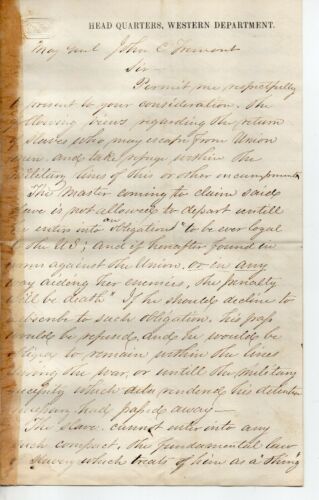 HEAD QUARTERS, WESTERN DEPARTMENT.
Maj Genl John C Fremont
Sir
Permit me respectfully
to present to your consideration. the
following views regarding the return
of Slaves who may escape from Union
men and take refuge within the
Military lines of this or other encampments
The Master coming to claim said
slave is not allowed to depart untill
he enters into an obligation "to be ever loyal
to the U S; and if hereafter found in
arms against the Union, or in any
way aiding her enemies, the penalty
will be death" If he should decline to
subscribe to such obligation, his pass
would be refused and he would be
obliged to remain within the lines
during the war, or untill the military
necessity which
had passed away—
The Slave cannot enter into any
such compact, the fundamental law
of slavery which treats of him as a "thing"